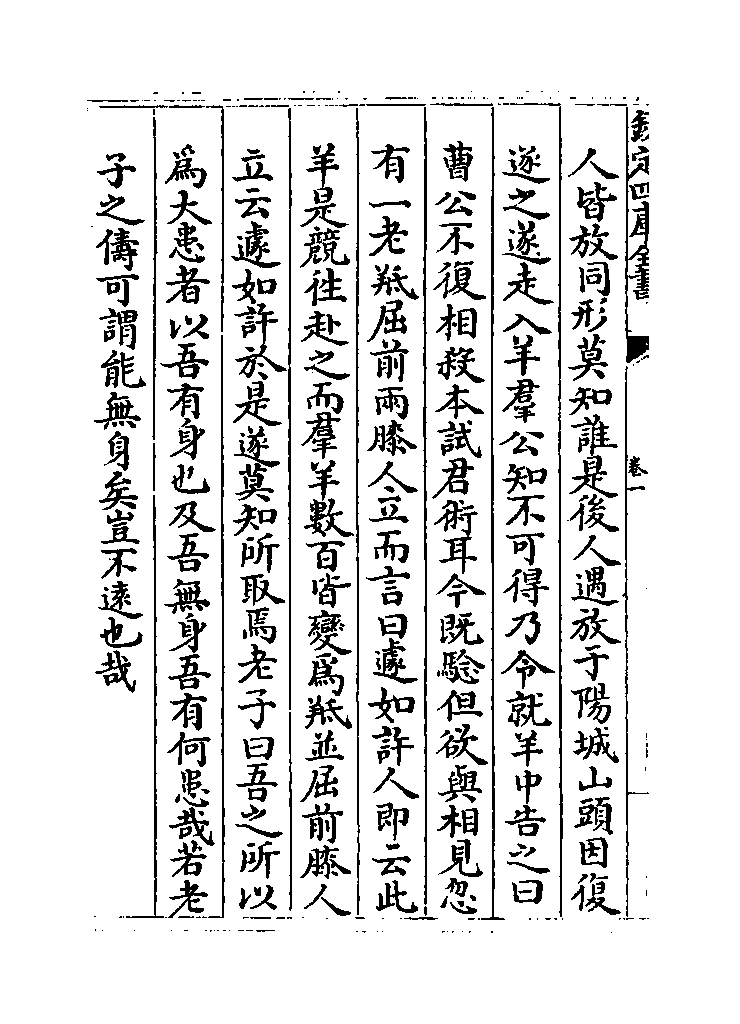 欽定四庫全書
卷一
人皆放同形莫知誰是後人遇放于陽城山頭因復
遂之遂走入羊羣公知不可得乃令就羊中告之曰
曹公不復相殺本試君術耳今既驗但欲與相見忽
有一老羝屈前兩膝人立而言曰遽如許人即云此
羊是競徃赴之而羣羊數百皆變為羝並屈前膝人
立云遽如許於是遂莫知所取焉老子曰吾之所以
為大患者以吾有身也及吾無身吾有何患哉若老
子之儔可謂能無身矣豈不遠也哉